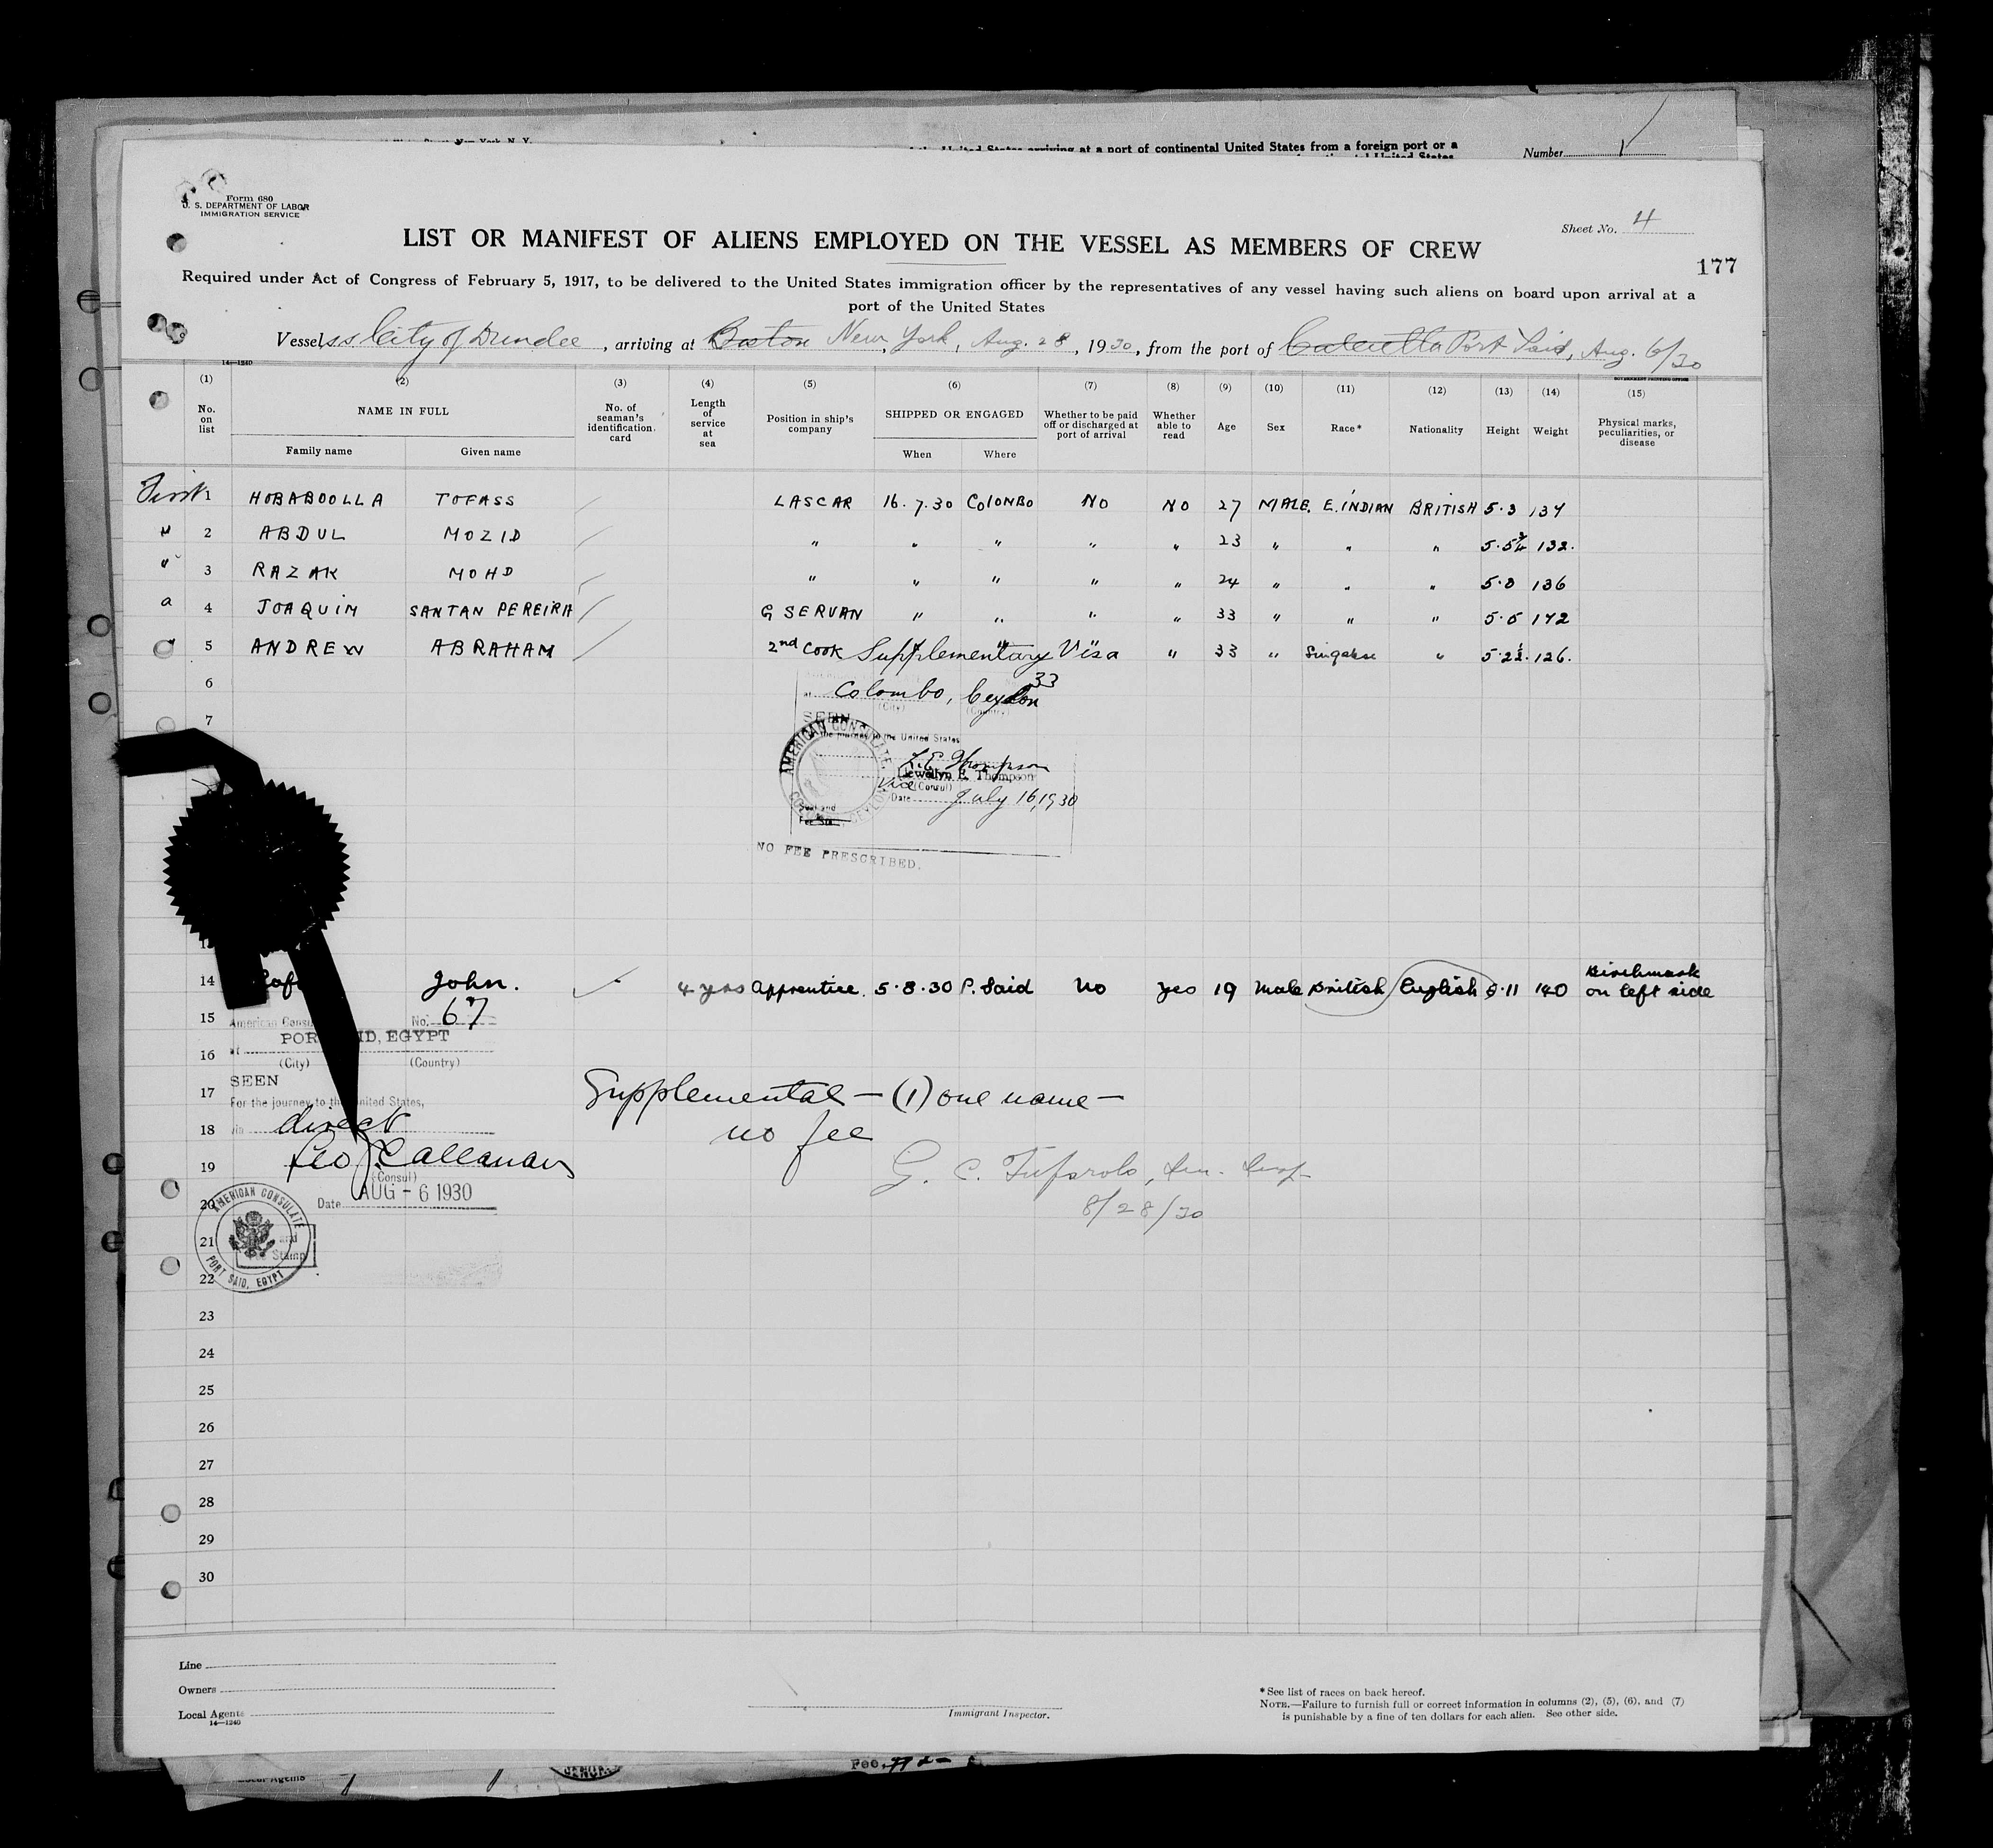 New York, N. Y.
arriving at a port of continental United States from a foreign port or a
Number
Form 680
U. S. DEPARTMENT OF LABOR
IMMIGRATION SERVICE
Sheet No. 4
LIST OR MANIFEST OF ALIENS EMPLOYED ON THE VESSEL AS MEMBERS OF CREW
177
Required under Act of Congress of February 5, 1917, to be delivered to the United States immigration officer by the representatives of any vessel having such aliens on board upon arrival at a
port of the United States
Vessel ss City of Dundee, arriving at Boston New York, Aug. 28, 1930, from the port of Calcutta Port Said, Aug. 6/30
14—1240
GOVERNMENT PRINTING OFFICE
(1) (2) (3) (4) (5) (6) (7) (8) (9) (10) (11) (12) (13) (14) (15)
No. on list NAME IN FULL No. of seaman's identification card Length of service at sea Position in ship's company SHIPPED OR ENGAGED Whether to be paid off or discharged at port of arrival Whether able to read Age Sex Race* Nationality Height Weight Physical marks, peculiarities, or disease
Family name Given name When Where
First 1 HOBABOOLLA TOFASS LASCAR 16.7.30 COLONBO NO NO 27 MALE. E. INDIAN BRITISH 5.3 134
" 2 ABDUL MOZID " " " " " 23 " " " 5.5¾ 132.
" 3 RAZAK MOHD " " " " " 24 " " " 5.8 136
4 JOAQUIM SANTAN PEREIRA G SERVAN " " " " 33 " " " 5.5 142
" 5 ANDREW ABRAHAM 2nd COOK Supplementary Visa " 33 " Singalese " 5.2½. 126.
6
33
at Colombo, Ceylon
(City) (Country)
7
SEEN
the journey to the United States
AMERICAN CONSULATE
CEYLON
L. E. Thompson
Llewellyn E. Thompson
Vice (Consul)
Date July 16, 1930
Seal and
Fee Sta
NO FEE PRESCRIBED.
14 John. 4 yrs Apprentice. 5.8.30 P. Said No yes 19 Male British English 5.11 140 Birthmark on left side
15 American Consul No. 67
PORT SAID, EGYPT
16 at
(City) (Country)
SEEN
17
For the journey to the United States,
Supplemental — (1) one name —
18 via direct
no fee
Leo J Callanan
19
(Consul)
G. C. Tufarolo, Im. Insp
Date AUG - 6 1930
8/28/30
20
AMERICAN CONSULATE
PORT SAID, EGYPT
and
Stamp
21
22
23
24
25
26
27
28
29
30
Line
Owners
Local Agents
14—1240
Immigrant Inspector.
*See list of races on back hereof.
NOTE.—Failure to furnish full or correct information in columns (2), (5), (6), and (7)
is punishable by a fine of ten dollars for each alien. See other side.
Local Agents
Fee,